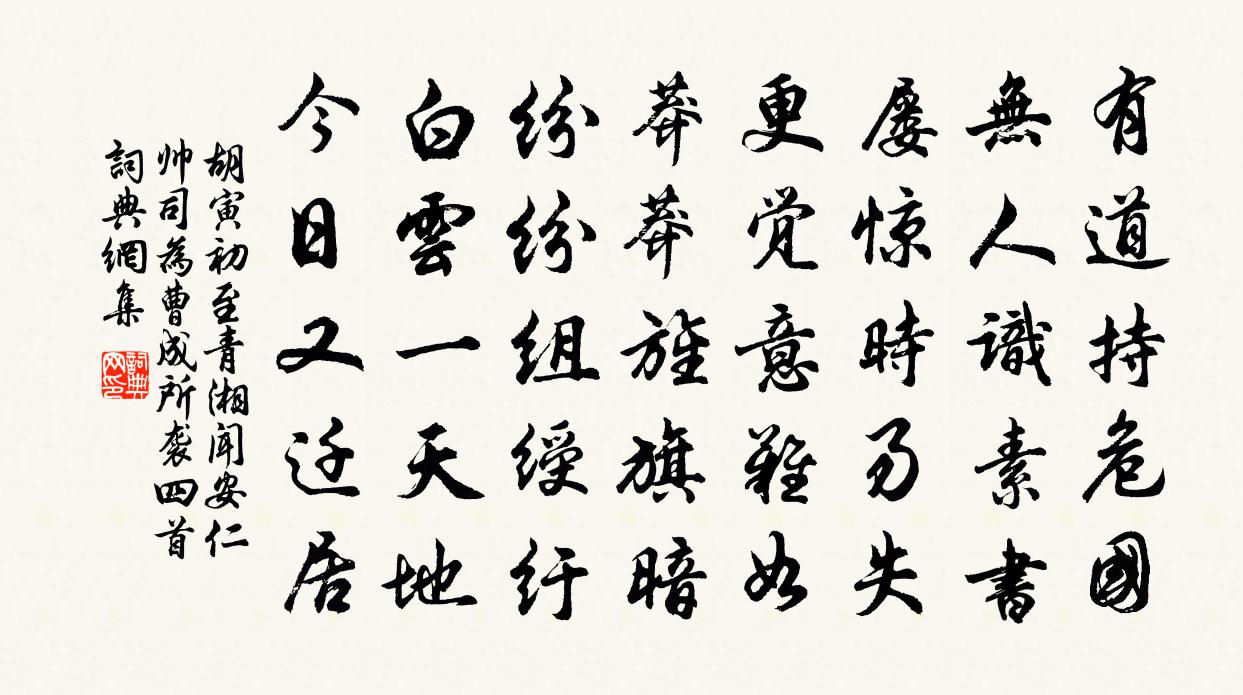 有道持危國
無人識素書
屡惊時易失
更觉意難如
莽莽旌旗暗
紛紛組綬紆
白雲一天地
今日又迁居
胡寅初至青湘闻安仁
帅司為曹成所袭四首
詞典網集
詞典网印